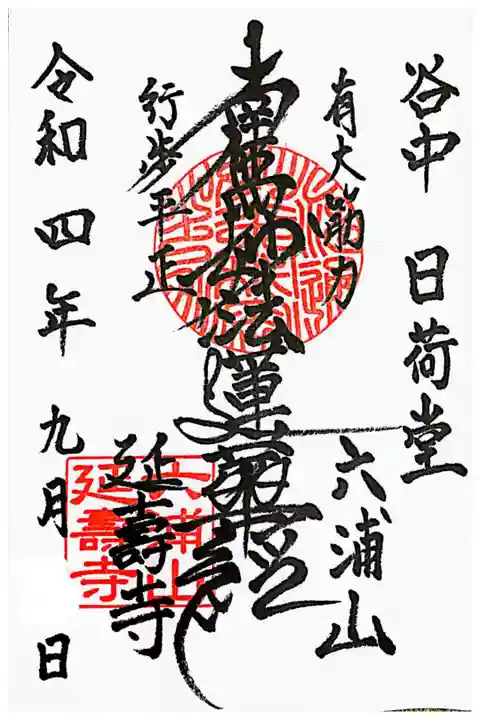 谷中 日荷堂
六浦山
有大筋力
南無妙法蓮華経
行歩平正
延壽寺
令和四年九月 日
六浦山
延壽寺